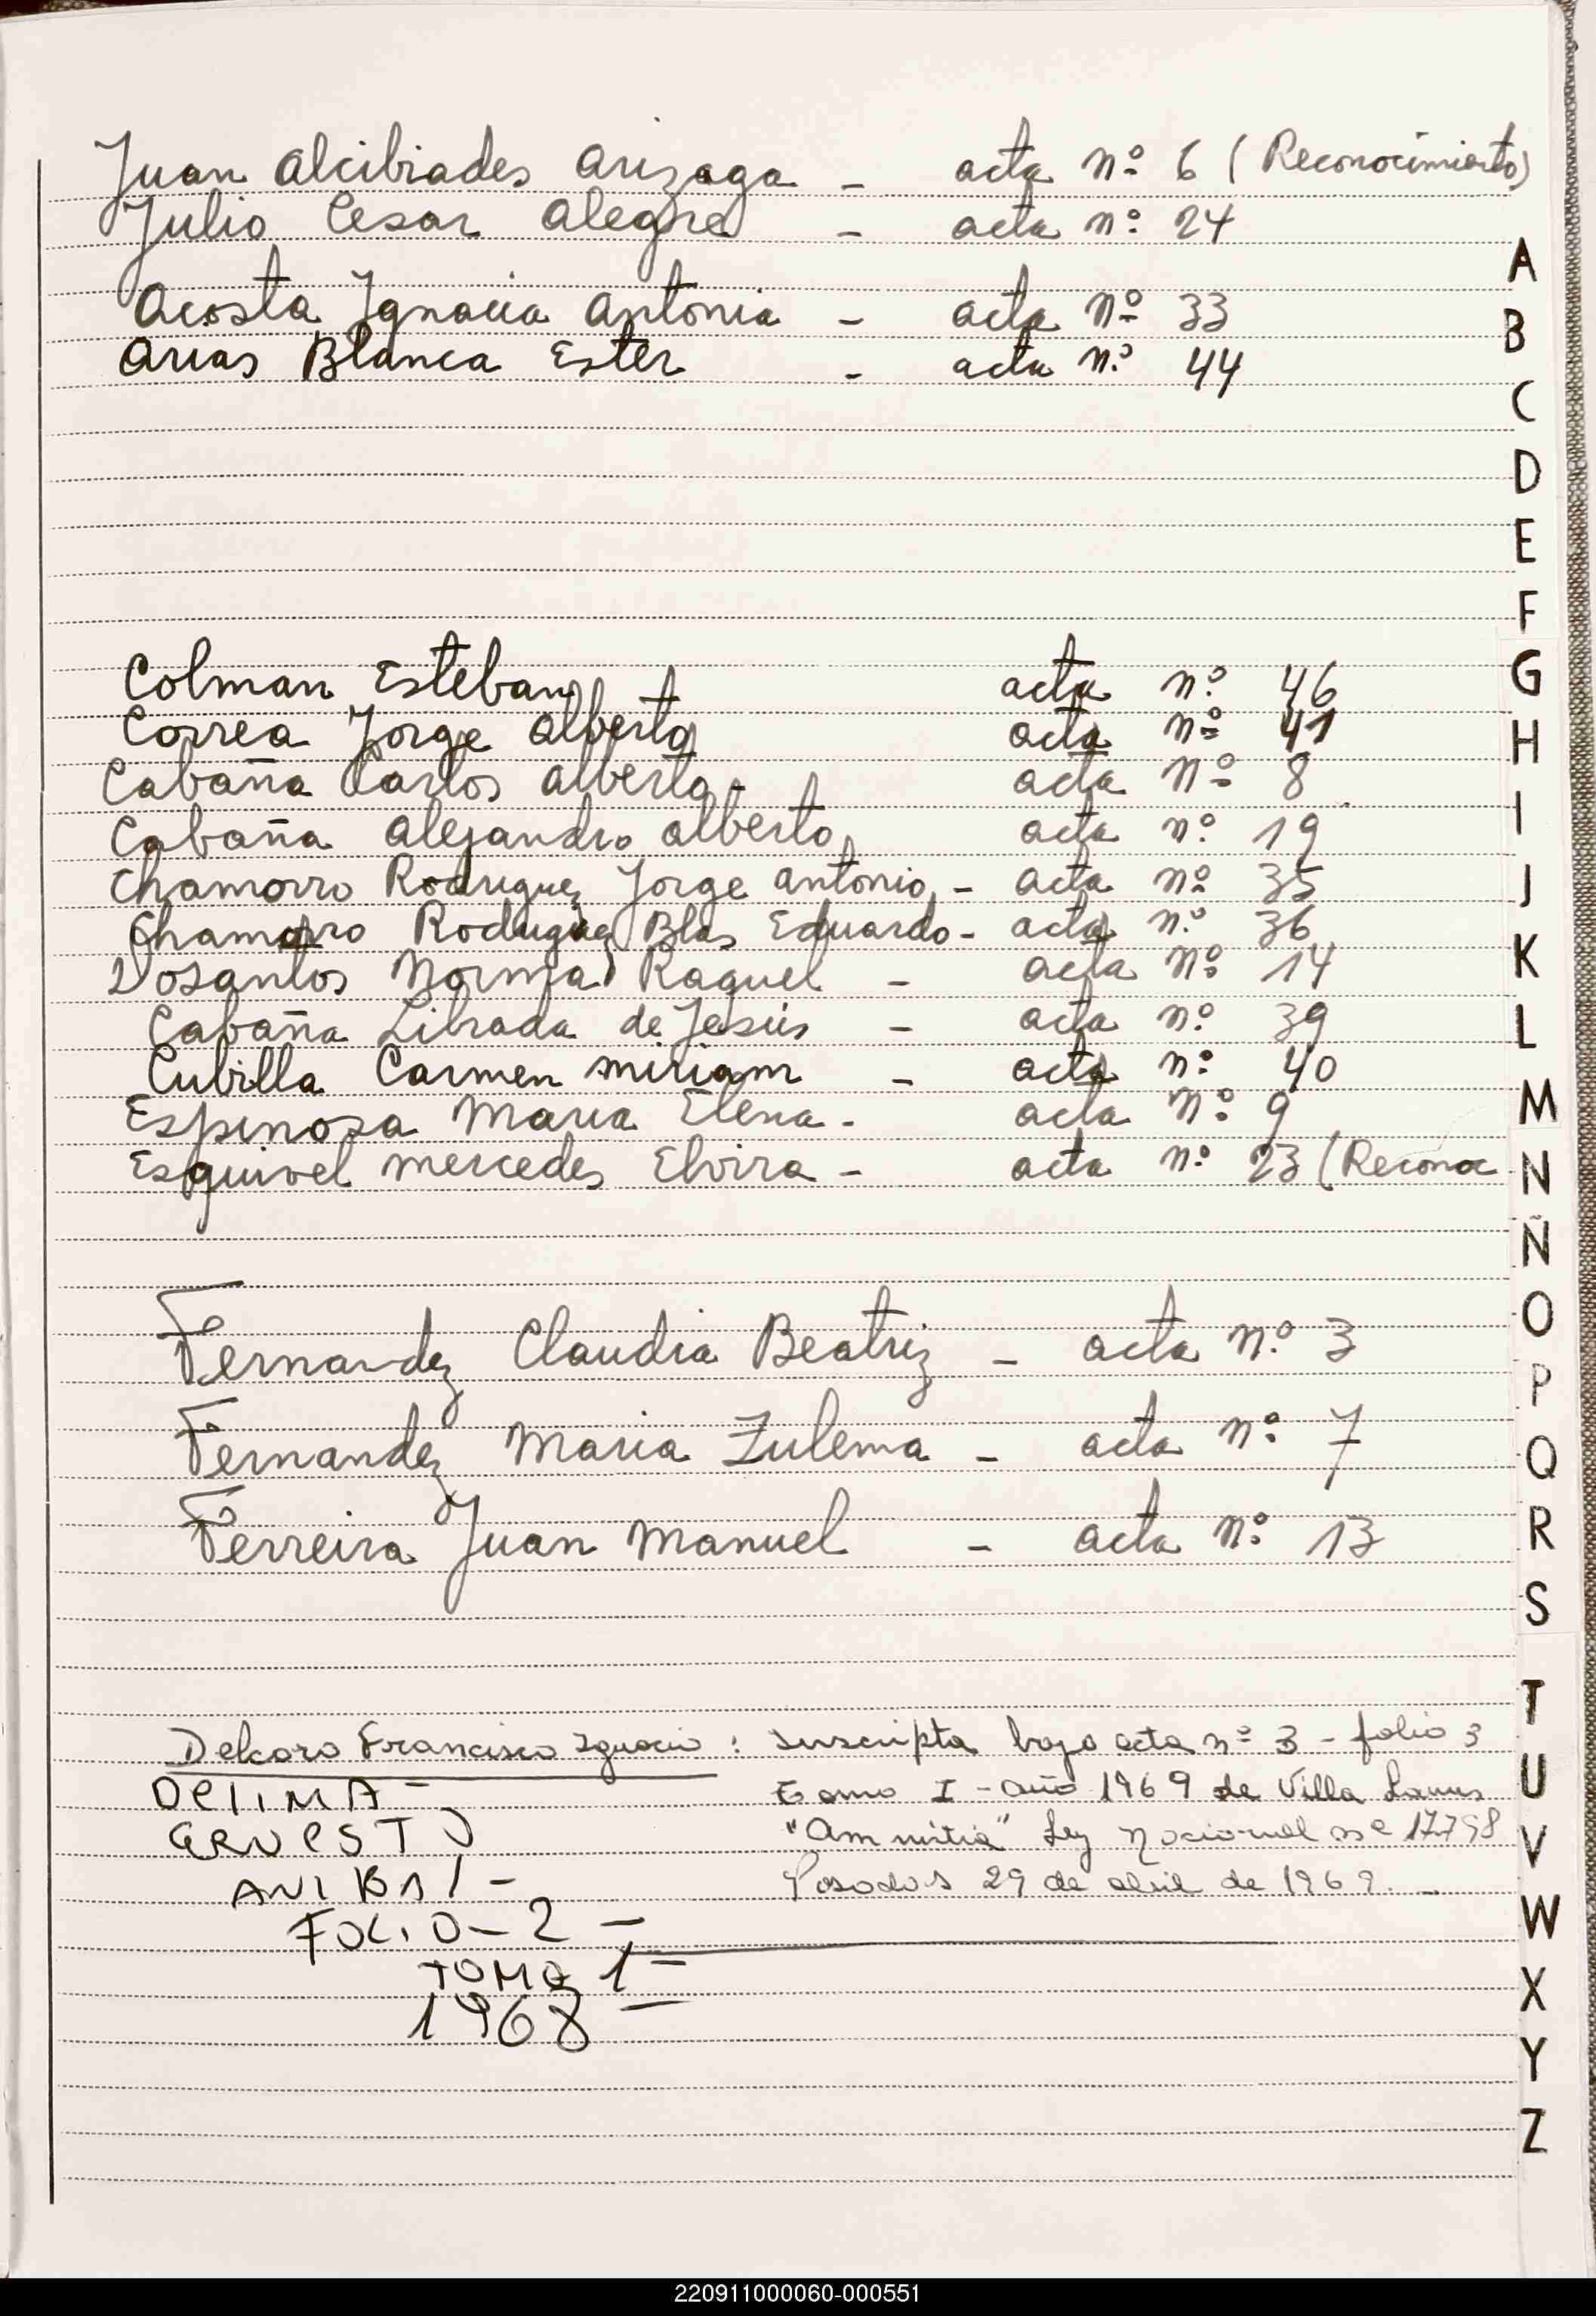 Juan Alcibiades Arizaga - acta nº 6 (Reconocimiento)
Julio Cesar Alegre - acta nº 24
Acosta Ignacia Antonia - acta nº 33
Arias Blanca Ester - acta nº 44
Colman Esteban acta nº 46
Correa Jorge Alberto acta nº 41
Cabaña Carlos Alberto - acta nº 8
Cabaña Alejandro Alberto acta nº 19
Chamorro Rodriguez Jorge Antonio - acta nº 35
Chamorro Rodriguez Blas Eduardo - acta nº 36
Dosantos Norma Raquel - acta nº 14
Cabaña Librada de Jesús - acta nº 39
Cubilla Carmen Miriam - acta nº 40
Espinosa Maria Elena - acta nº 9
Esquivel Mercedes Elvira - acta nº 23 (Reconoc
Fernandez Claudia Beatriz - acta nº 3
Fernandez Maria Zulema - acta nº 7
Ferreira Juan Manuel - acta nº 13
Delcoro Francisco Ignacio : suscripta bajo acta nº 3 - folio 3
DELIMA - Tomo I - año 1969 de Villa Lanus
ERNESTO "Amnitia" Ley Nacional nº 17798
ANIBAL - Posadas 29 de abril de 1969. -
FOLIO - 2 -
TOMO 1 -
1968 -
A
B
C
D
E
F
G
H
I
J
K
L
M
N
Ñ
O
P
Q
R
S
T
U
V
W
X
Y
Z
220911000060-000551